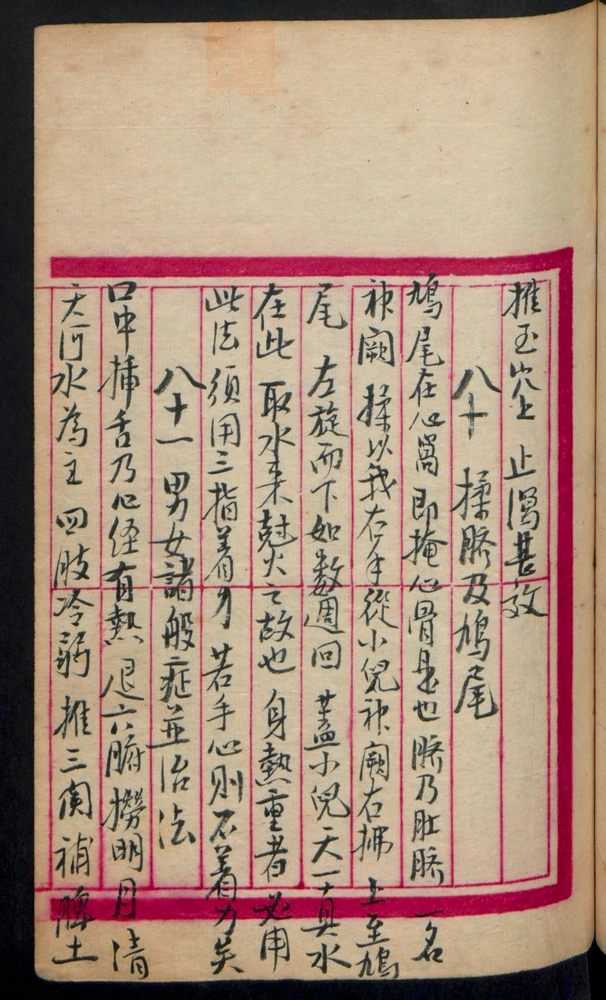 推玉穴上 止渴甚效
八十 揉臍及鳩尾
鳩尾在心窩即掩心骨是也臍乃肚臍 一名
神闕 揉以我右手從小兒神闕右拂 上至鳩
尾 左旋而下如數週回 蓋小兒天一真水
在此 取水来尅火之故也 身熱重者必用
此法須用三指着力 若手心則不着力矣
八十一 男女諸般症並治法
口中插舌乃心経有熱 退六腑撈明月清
天河水為主 四肢冷弱 推三関補脾土